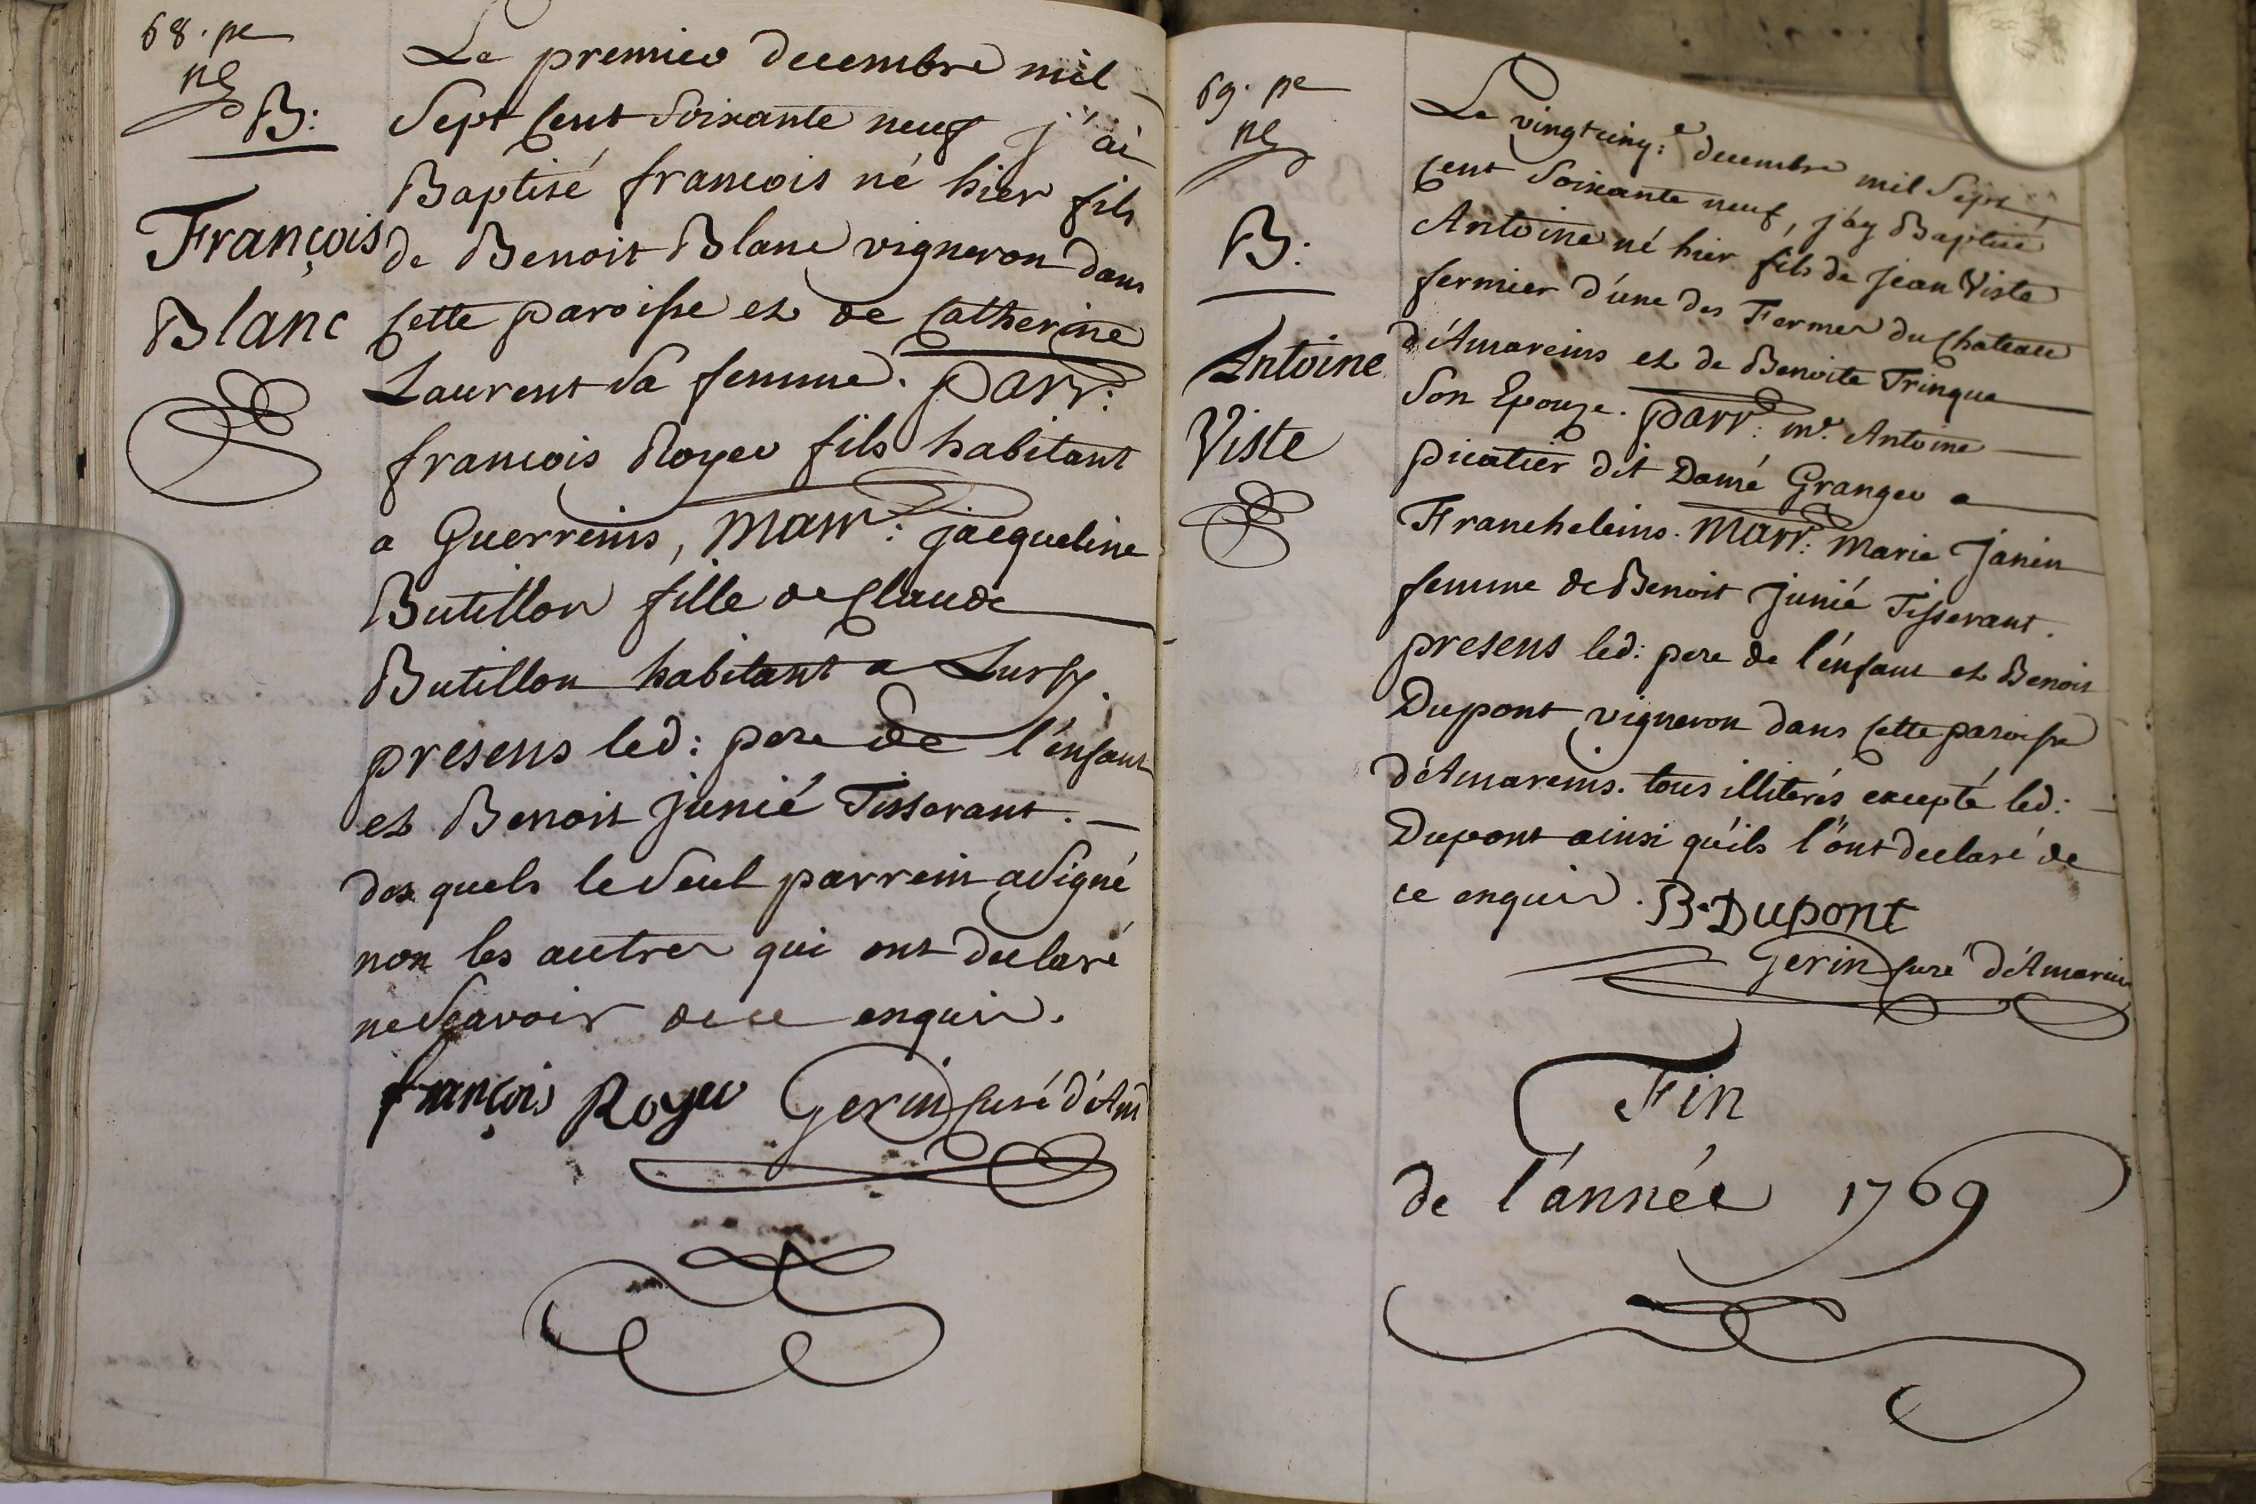 68. pe
B:
François
Blanc
Le premier decembre mil
Sept Cent Soixante neuf j'ai
Baptisé francois né hier fils
de Benoit Blanc vigneron dans
Cette paroisse et de Catherine
Laurent Sa femme. Parr:
francois Royer fils habitant
a Guerreins, Marr: jacqueline
Butillon fille de Claude
Butillon habitant a Lurcy.
presens led: pere de l'enfant
et Benoit junié Tisserant.
des quels le Seul parrein a Signé
non les autres qui ont declaré
ne Scavoir de ce enquis.
françois Royer Gerin Curé d'Am
69. pe
B:
Antoine
Viste
Le vingtcinq:e decembre mil Sept
Cent Soixante neuf, j'ay Baptisé
Antoine né hier fils de jean Viste
fermier d'une des Fermes du Chateau
d'Amareins et de Benoite Trinque
Son Epouze. Parr: me. Antoine
picatier dit Damé Granger a
Francheleins. Marr: Marie Janin
femme de Benoit junié Tisserant.
presens led: pere de l'enfant et Benoit
Dupont vigneron dans Cette paroisse
d'Amareins. tous illiterés excepté led:
Dupont ainsi qu'ils l'ont declaré de
ce enquis. B. Dupont
Gerin Curé d'Amareins
Fin
de l'année 1769